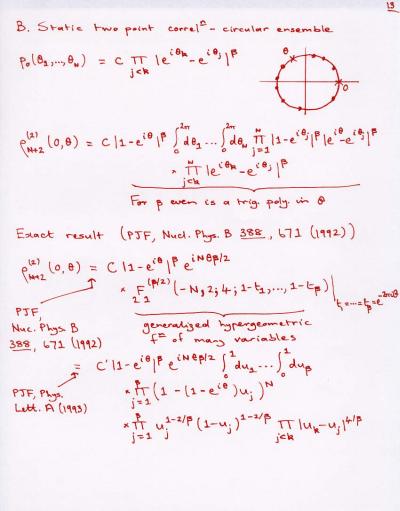 13
B. Static two point correlⁿ - circular ensemble
p₀(θ₁,...,θ_N) = C ∏_{j<k} |e^{iθ_k} - e^{iθ_j}|^β
θ
0
ρ^{(2)}_{N+2}(0,θ) = C |1-e^{iθ}|^β ∫_0^{2π} dθ₁ ... ∫_0^{2π} dθ_N ∏_{j=1}^N |1-e^{iθ_j}|^β |e^{iθ}-e^{iθ_j}|^β
× ∏_{j<k}^N |e^{iθ_k}-e^{iθ_j}|^β
For β even is a trig. poly. in θ
Exact result (PJF, Nucl. Phys. B 388, 671 (1992))
ρ^{(2)}_{N+2}(0,θ) = C |1-e^{iθ}|^β e^{iNθβ/2}
× ₂F₁^{(β/2)}(-N,2;4;1-t₁,...,1-t_β)|_{t₁=...=t_β=e^{-2πiθ}}
PJF,
Nuc. Phys. B
388, 671 (1992)
generalized hypergeometric
fⁿ of many variables
= C' |1-e^{iθ}|^β e^{iNθβ/2} ∫_0^1 du₁ ... ∫_0^1 du_β
PJF, Phys.
Lett. A (1993)
× ∏_{j=1}^β (1-(1-e^{iθ})u_j)^N
× ∏_{j=1}^β u_j^{1-2/β} (1-u_j)^{1-2/β} ∏_{j<k} |u_k-u_j|^{4/β}